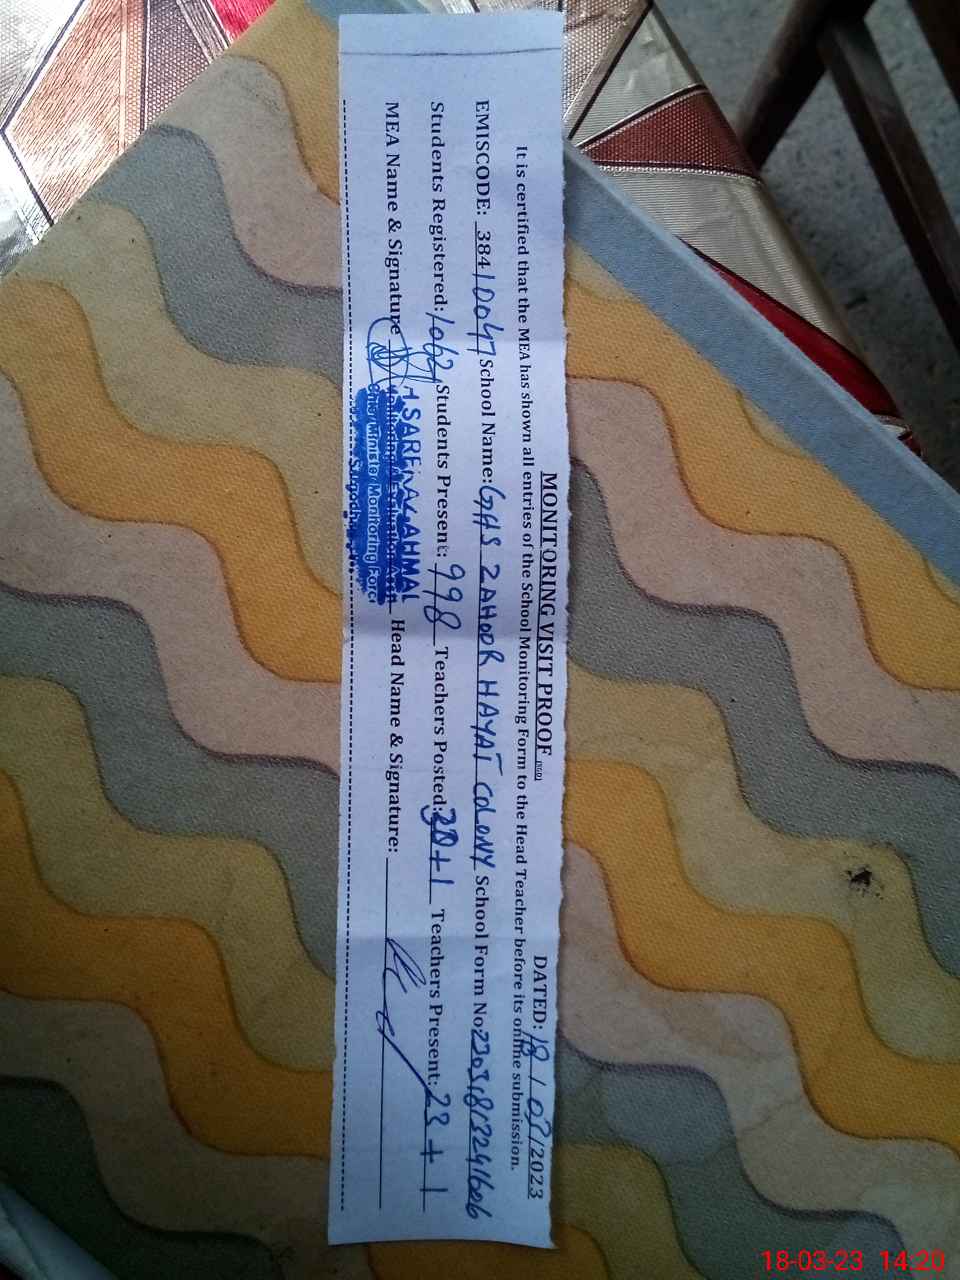 MONITORING VISIT PROOF DATED: 18/03/2023
It is certified that the MEA has shown all entries of the School Monitoring Form to the Head Teacher before its online submission.
EMISCODE: 38410047 School Name: GHS ZAHOOR HAYAT COLONY School Form No: 23031813241606
Students Registered: 1062 Students Present: 998 Teachers Posted: 30+1 Teachers Present: 23+1
MEA Name & Signature Head Name & Signature:
AHMAD
Monitoring & Evaluation
Chief Minister Monitoring Force
Sargodha
18-03-23 14:20